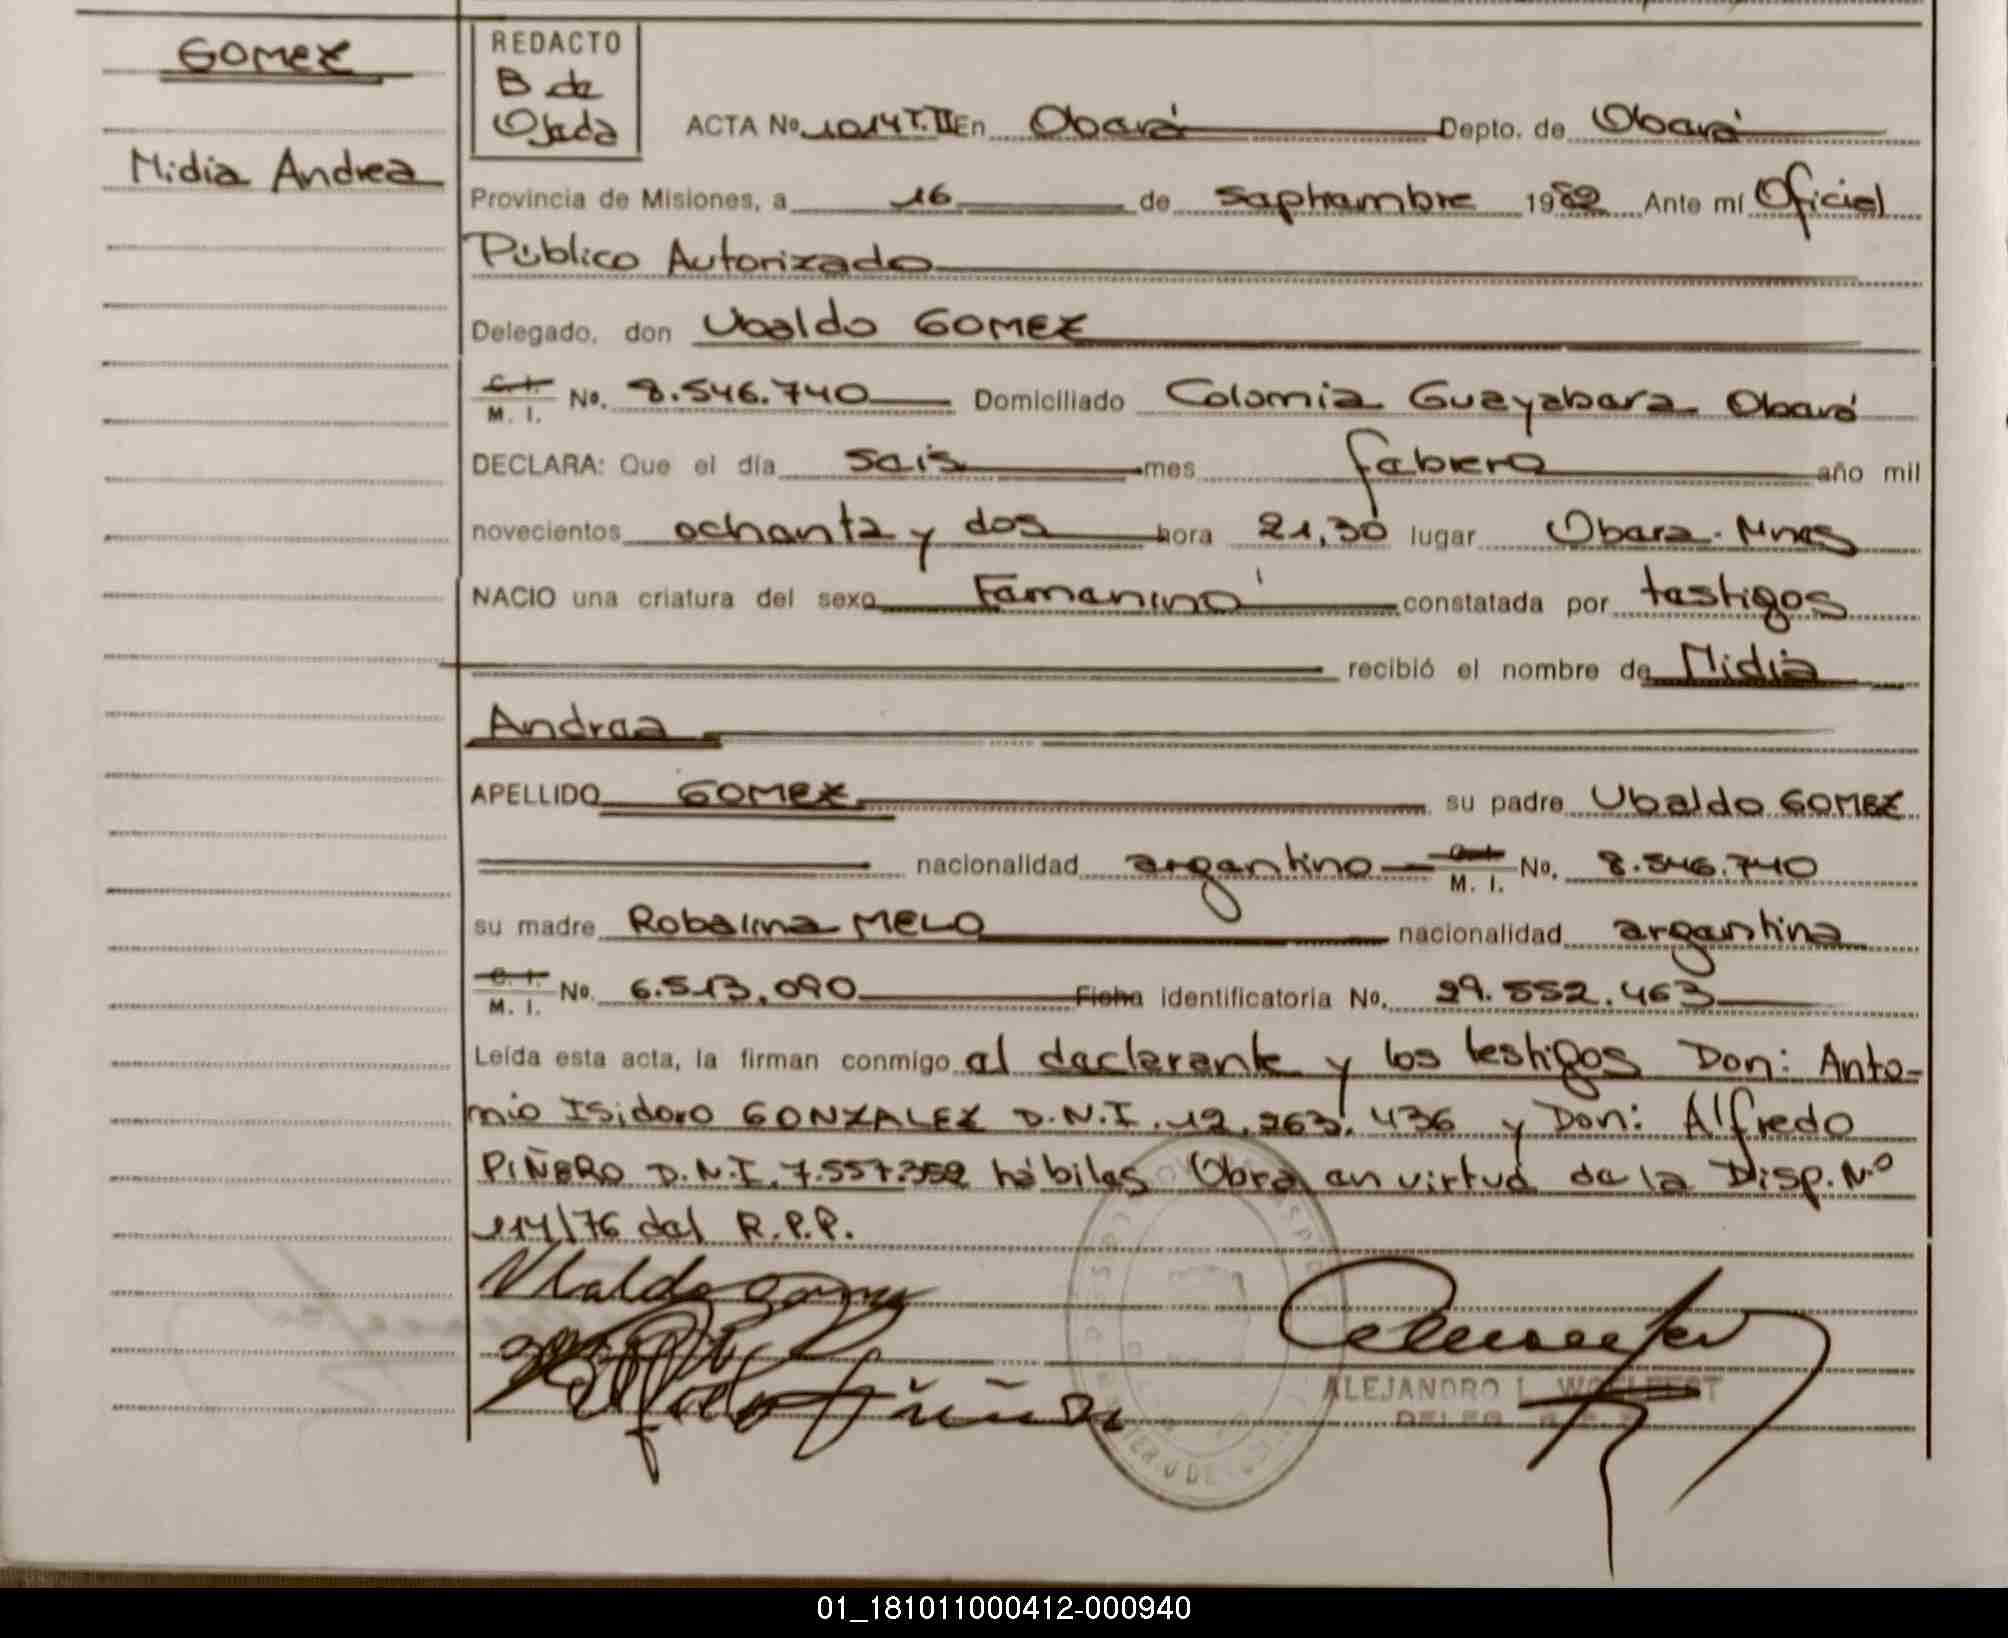 GOMEZ
Nidia Andrea
REDACTO
B de
Ojeda
ACTA Nº 1014 T. II En Oberá Depto. de Oberá
Provincia de Misiones, a 16 de septiembre 1982 Ante mí Oficial
Público Autorizado
Delegado, don Ubaldo GOMEZ
C. I.
M. I. No. 8.546.740 Domiciliado Colonia Guayabera Oberá
DECLARA: Que el día seis mes febrero año mil
novecientos ochenta y dos hora 21,30 lugar Oberá - Mnes
NACIO una criatura del sexo Femenino constatada por testigos
recibió el nombre de Nidia
Andrea
APELLIDO GOMEZ su padre Ubaldo GOMEZ
nacionalidad argentino M. I. No. 8.546.740
su madre Robelina MELO nacionalidad argentina
C. I.
M. I. No. 6.513.090 Ficha identificatoria No. 29.552.463
Leída esta acta, la firman conmigo el declarante y los testigos Don: Anto-
nio Isidoro GONZALEZ D.N.I. 12.263.436 y Don: Alfredo
PIÑERO D.N.I. 7.557.352 hábiles Obra en virtud de la Disp. Nº
114/76 del R.P.P.
Ubaldo Gomez
ALEJANDRO L. WOELFERT
01_181011000412-000940